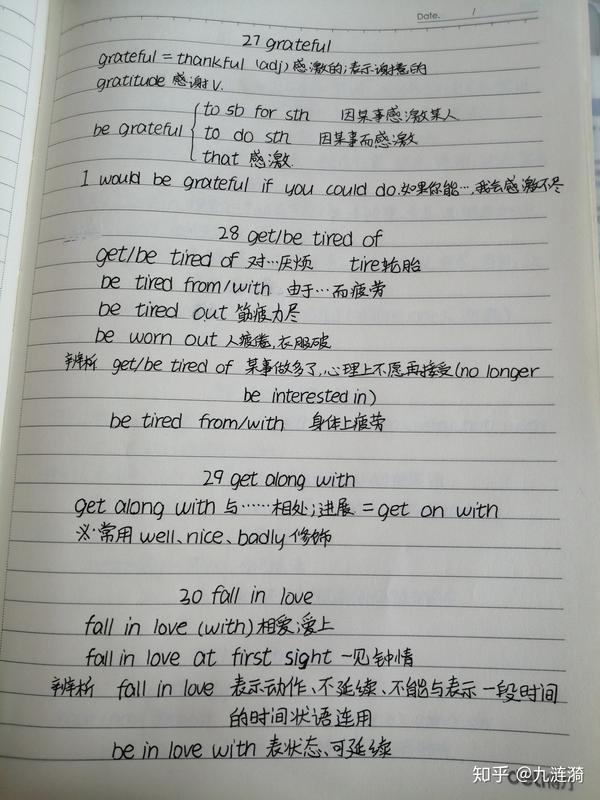 Date. /
27 grateful
grateful = thankful (adj) 感激的;表示谢意的
gratitude 感谢V.
be grateful { to sb for sth 因某事感激某人
to do sth 因某事而感激
that 感激
I would be grateful if you could do.如果你能…,我会感激不尽
28 get/be tired of
get/be tired of 对…厌烦 tire轮胎
be tired from/with 由于…而疲劳
be tired out 筋疲力尽
be worn out 人疲倦,衣服破
辨析 get/be tired of 某事做多了,心理上不愿再接受(no longer
be interested in)
be tired from/with 身体上疲劳
29 get along with
get along with 与……相处;进展 = get on with
※常用 well、nice、badly 修饰
30 fall in love
fall in love (with) 相爱;爱上
fall in love at first sight 一见钟情
辨析 fall in love 表示动作、不延续、不能与表示一段时间
的时间状语连用
be in love with 表状态、可延续
知乎 @九涟漪